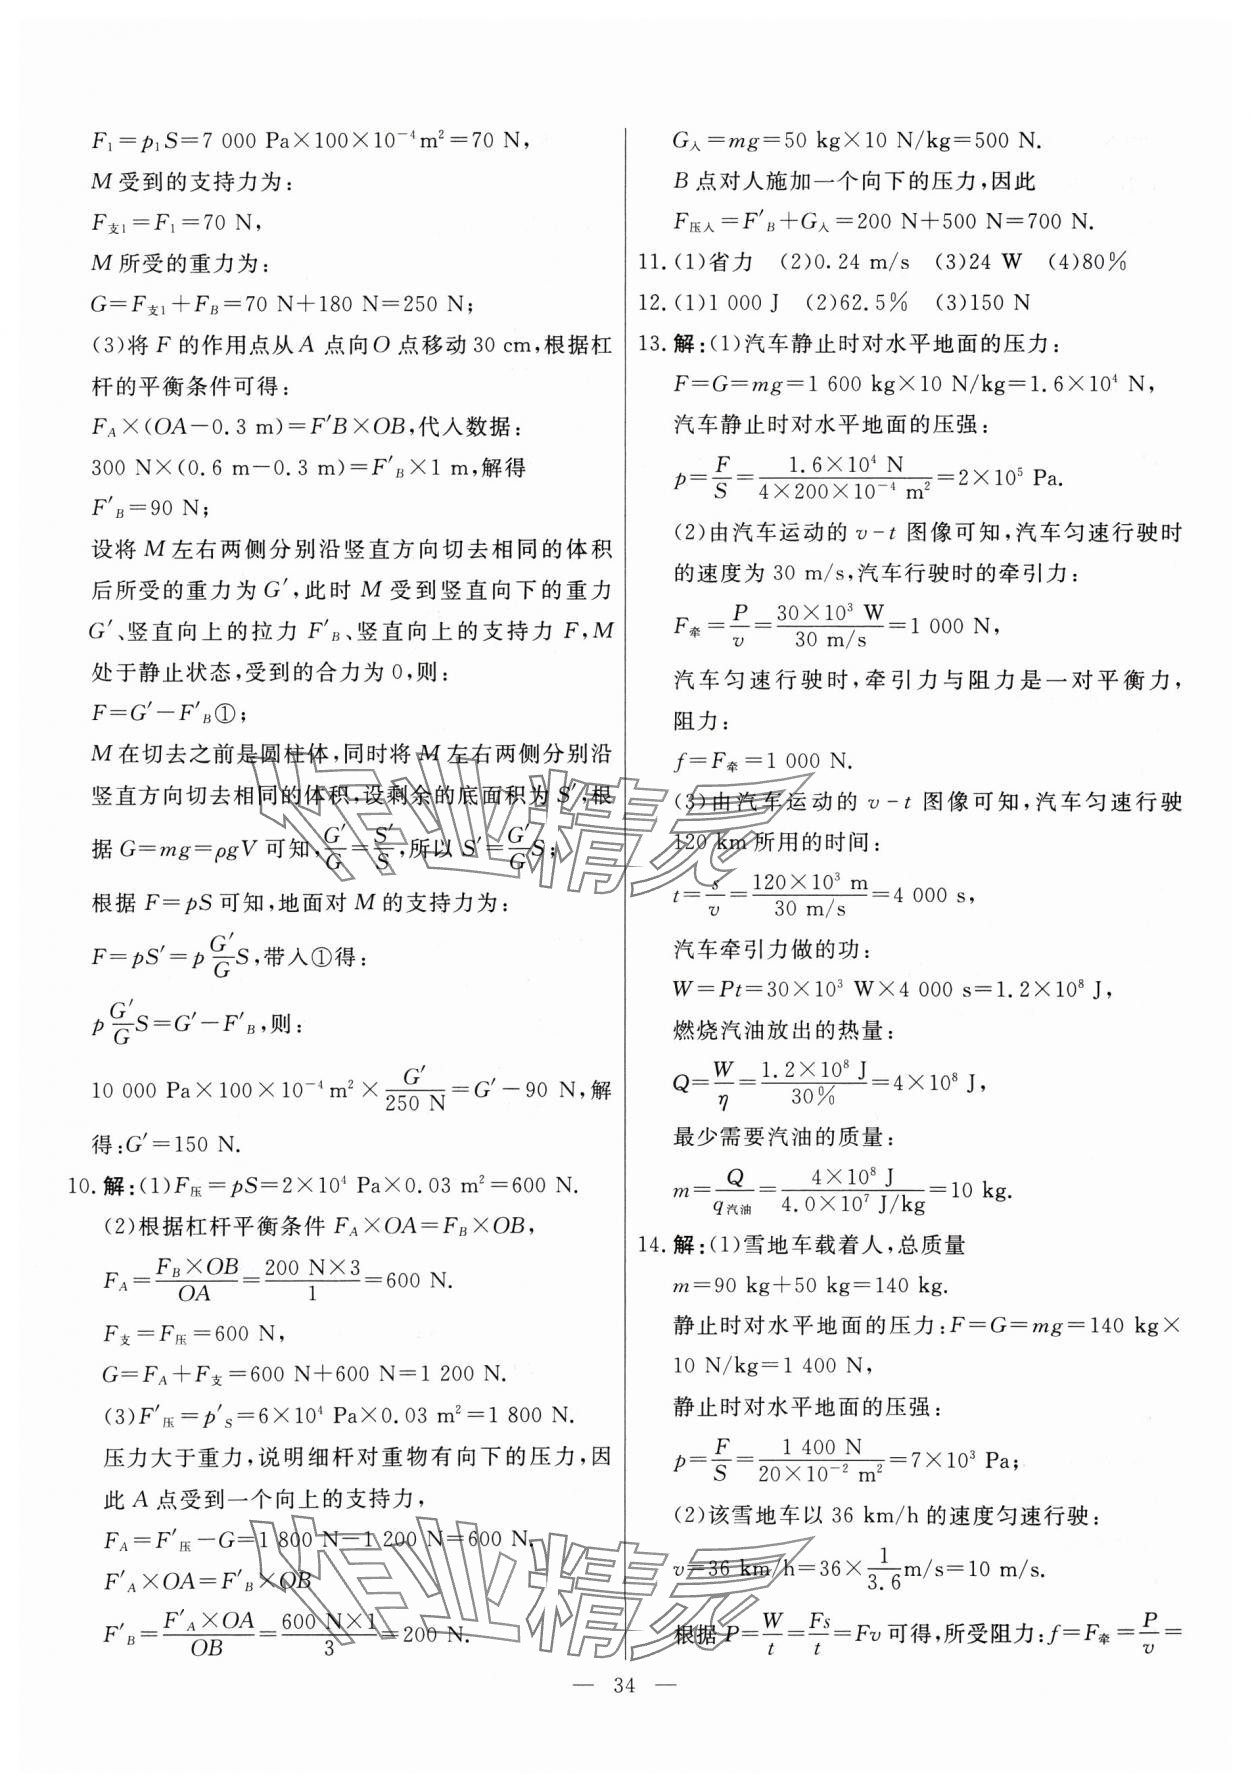 F₁=p₁S=7 000 Pa×100×10⁻⁴m²=70 N,
M 受到的支持力为:
F支1=F₁=70 N,
M 所受的重力为:
G=F支1+F_B=70 N+180 N=250 N;
(3)将 F 的作用点从 A 点向 O 点移动 30 cm,根据杠
杆的平衡条件可得:
F_A×(OA−0.3 m)=F′B×OB,代入数据:
300 N×(0.6 m−0.3 m)=F′_B×1 m,解得
F′_B=90 N;
设将 M 左右两侧分别沿竖直方向切去相同的体积
后所受的重力为 G′,此时 M 受到竖直向下的重力
G′、竖直向上的拉力 F′_B、竖直向上的支持力 F,M
处于静止状态,受到的合力为 0,则:
F=G′−F′_B①;
M 在切去之前是圆柱体,同时将 M 左右两侧分别沿
竖直方向切去相同的体积,设剩余的底面积为 S′,根
据 G=mg=ρgV 可知,G′/G=S′/S,所以 S′=G′/G S;
根据 F=pS 可知,地面对 M 的支持力为:
F=pS′=p G′/G S,带入①得:
p G′/G S=G′−F′_B,则:
10 000 Pa×100×10⁻⁴m²×G′/250 N=G′−90 N,解
得:G′=150 N.
10. 解:(1)F压=pS=2×10⁴ Pa×0.03 m²=600 N.
(2)根据杠杆平衡条件 F_A×OA=F_B×OB,
F_A=F_B×OB/OA=200 N×3/1=600 N.
F支=F压=600 N,
G=F_A+F支=600 N+600 N=1 200 N.
(3)F′压=p′_s=6×10⁴ Pa×0.03 m²=1 800 N.
压力大于重力,说明细杆对重物有向下的压力,因
此 A 点受到一个向上的支持力,
F_A=F′压−G=1 800 N−1 200 N=600 N.
F′_A×OA=F′_B×OB
F′_B=F′_A×OA/OB=600 N×1/3=200 N.
G人=mg=50 kg×10 N/kg=500 N.
B 点对人施加一个向下的压力,因此
F压人=F′_B+G人=200 N+500 N=700 N.
11. (1)省力 (2)0.24 m/s (3)24 W (4)80%
12. (1)1 000 J (2)62.5% (3)150 N
13. 解:(1)汽车静止时对水平地面的压力:
F=G=mg=1 600 kg×10 N/kg=1.6×10⁴ N,
汽车静止时对水平地面的压强:
p=F/S=1.6×10⁴ N/4×200×10⁻⁴ m²=2×10⁵ Pa.
(2)由汽车运动的 v-t 图像可知,汽车匀速行驶时
的速度为 30 m/s,汽车行驶时的牵引力:
F牵=P/v=30×10³ W/30 m/s=1 000 N,
汽车匀速行驶时,牵引力与阻力是一对平衡力,
阻力:
f=F牵=1 000 N.
(3)由汽车运动的 v-t 图像可知,汽车匀速行驶
120 km 所用的时间:
t=s/v=120×10³ m/30 m/s=4 000 s,
汽车牵引力做的功:
W=Pt=30×10³ W×4 000 s=1.2×10⁸ J,
燃烧汽油放出的热量:
Q=W/η=1.2×10⁸ J/30%=4×10⁸ J,
最少需要汽油的质量:
m=Q/q汽油=4×10⁸ J/4.0×10⁷ J/kg=10 kg.
14. 解:(1)雪地车载着人,总质量
m=90 kg+50 kg=140 kg.
静止时对水平地面的压力:F=G=mg=140 kg×
10 N/kg=1 400 N,
静止时对水平地面的压强:
p=F/S=1 400 N/20×10⁻² m²=7×10³ Pa;
(2)该雪地车以 36 km/h 的速度匀速行驶:
v=36 km/h=36×1/3.6 m/s=10 m/s.
根据 P=W/t=Fs/t=Fv 可得,所受阻力:f=F牵=P/v=
作业精灵
作业精灵
— 34 —